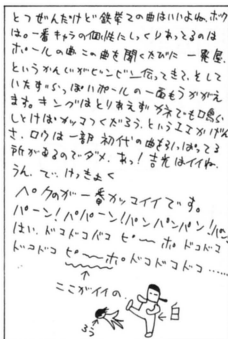 とつぜんだけど鉄拳での曲はいいよね。ボク
は。一番キャラの個性にしっくりあってるのは
ポールの曲。この曲を聞くたびに一発屋、
というかんじがビンビン伝ってきて、そして
いたずらっぽいポールの一面もうかがえ
ます。キングはとりあえずガネでも鳴ら
しとけばカッコつくだろう、というエエかげん
さ。ロウは一部初代の曲をひっぱってる
所があるのでダメ。あっ！吉光はイイね。
うん。で、けっきょく
ペクが一番カッコイイです。
パーン！パパーン！パンパンパン！パン
はい、ドコドコバコ ピ～ーポ ドコドコ
ドコドコ ピ～ーポ ドコドコドコ……
ここがイイの
白
ろう